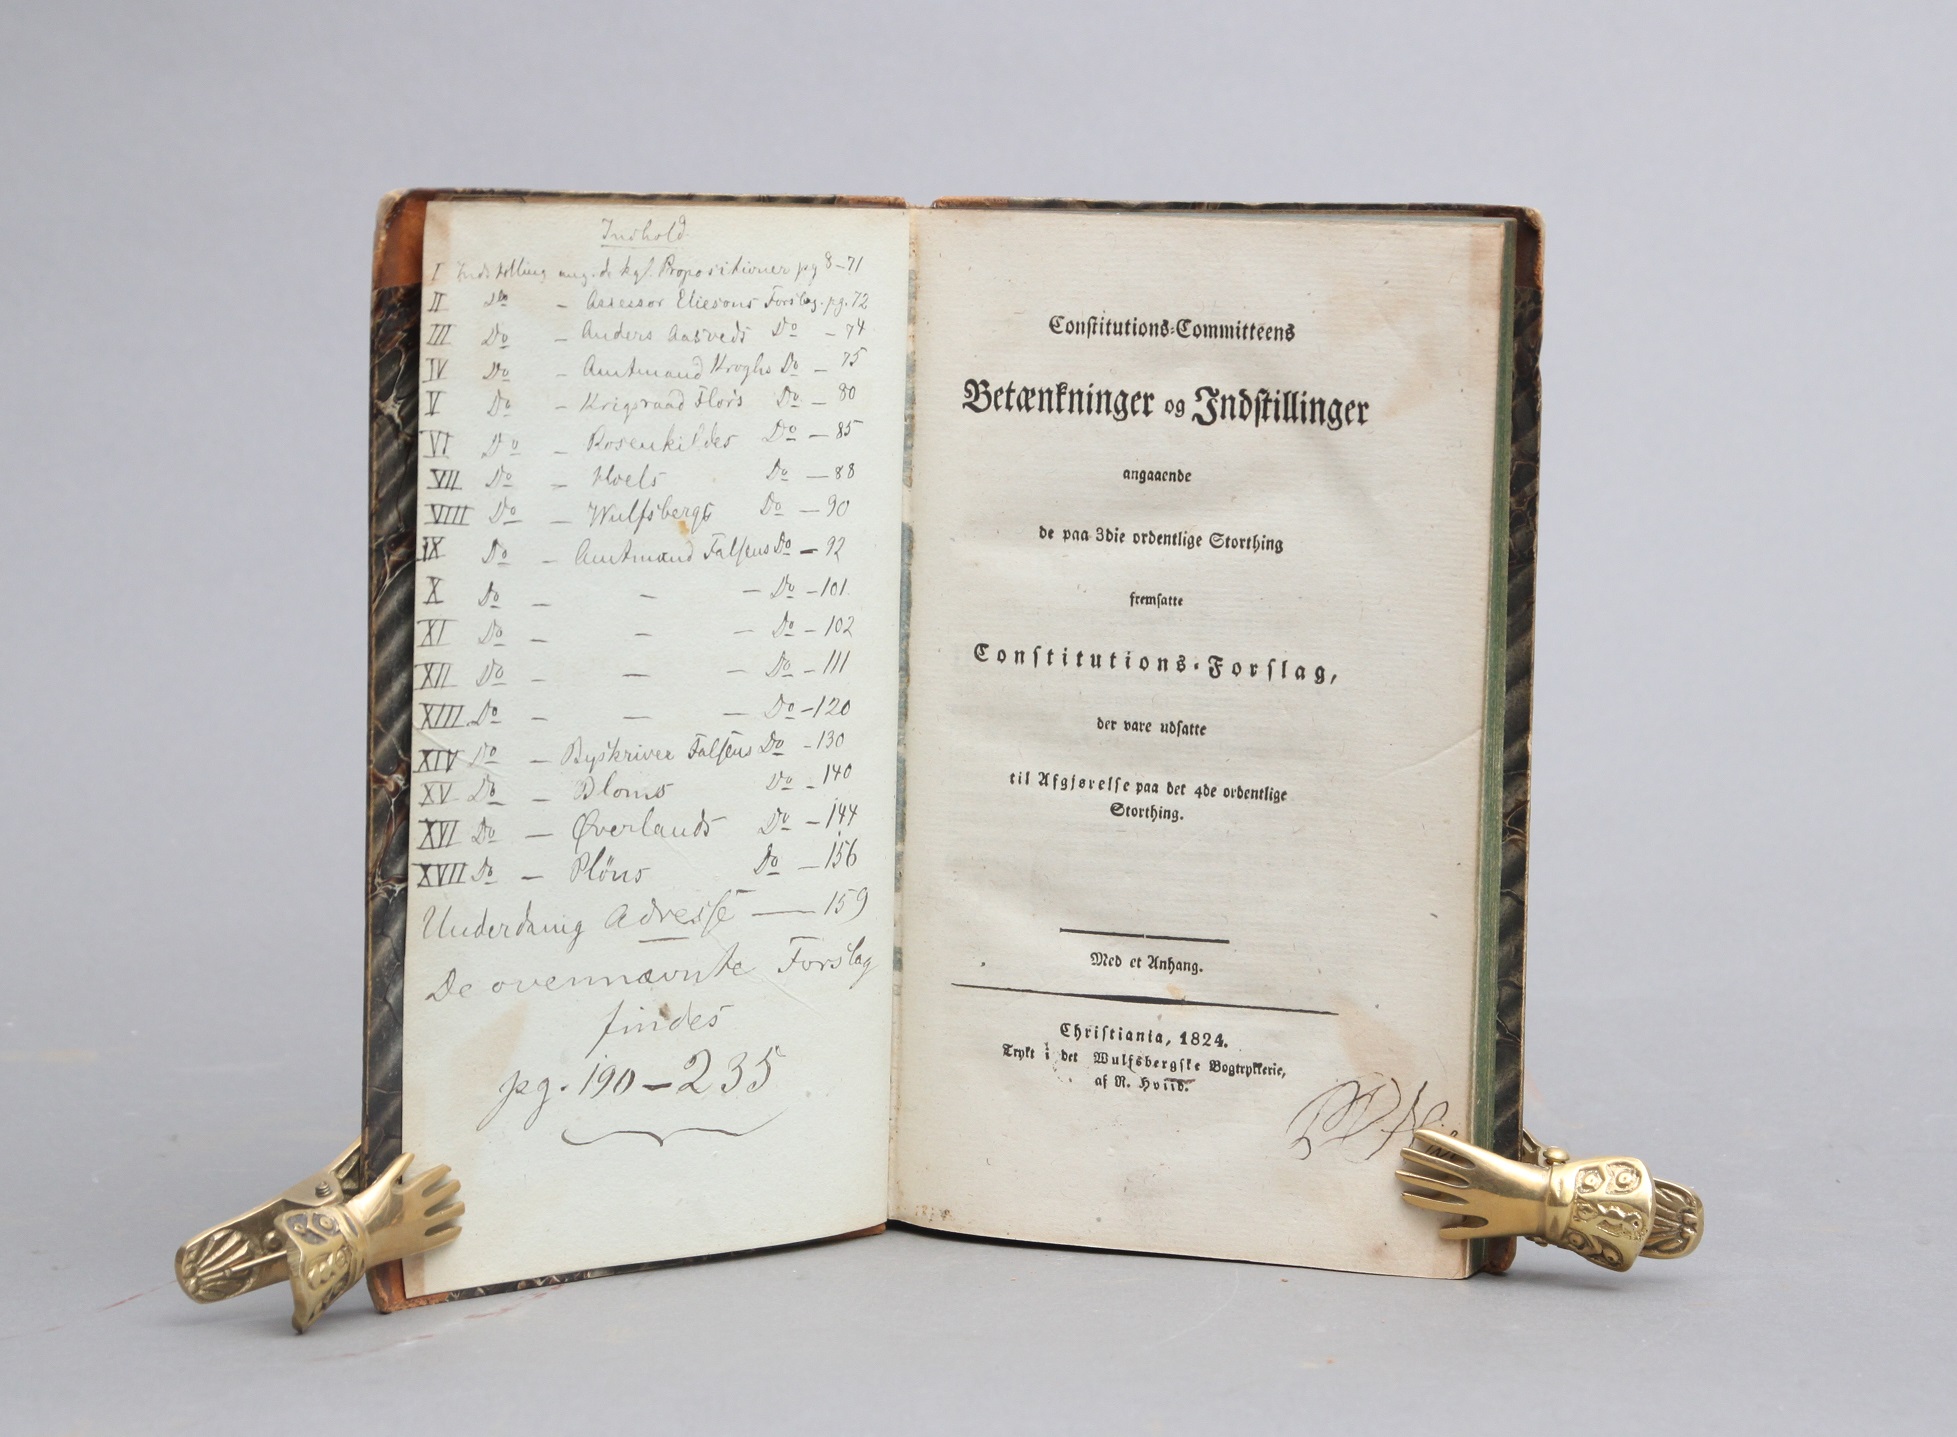 Indhold
I Indstilling ang. de kgl. Propositioner pg 8-71
II Do - Assessor Eliesons Forslag. pg. 72
III Do - Anders Aasveds Do - 74
IV Do - Amtmand Kroghs Do - 75
V Do - Krigsraad Flors Do - 80
VI Do - Rosenkildes Do - 85
VII Do - Hoels Do - 88
VIII Do - Wulfsbergs Do - 90
IX Do - Amtmand Falsens Do - 92
X Do - - - Do - 101.
XI Do - - - Do - 102
XII Do - - - Do - 111
XIII Do - - - Do - 120
XIV Do - Byskriver Falsens Do - 130
XV Do - Bloms Do - 140
XVI Do - Øverlands Do - 144
XVII Do - Plöns Do - 156
Underdanig Adresse — 159
De ovennævnte Forslag
findes
pg. 190-235
Constitutions-Committeens
Betænkninger og Indstillinger
angaaende
de paa 3die ordentlige Storthing
fremsatte
Constitutions-Forslag,
der vare udsatte
til Afgjørelse paa det 4de ordentlige
Storthing.
Med et Anhang.
Christiania, 1824.
Trykt i det Wulfsbergske Bogtrykkerie,
af R. Hviid.